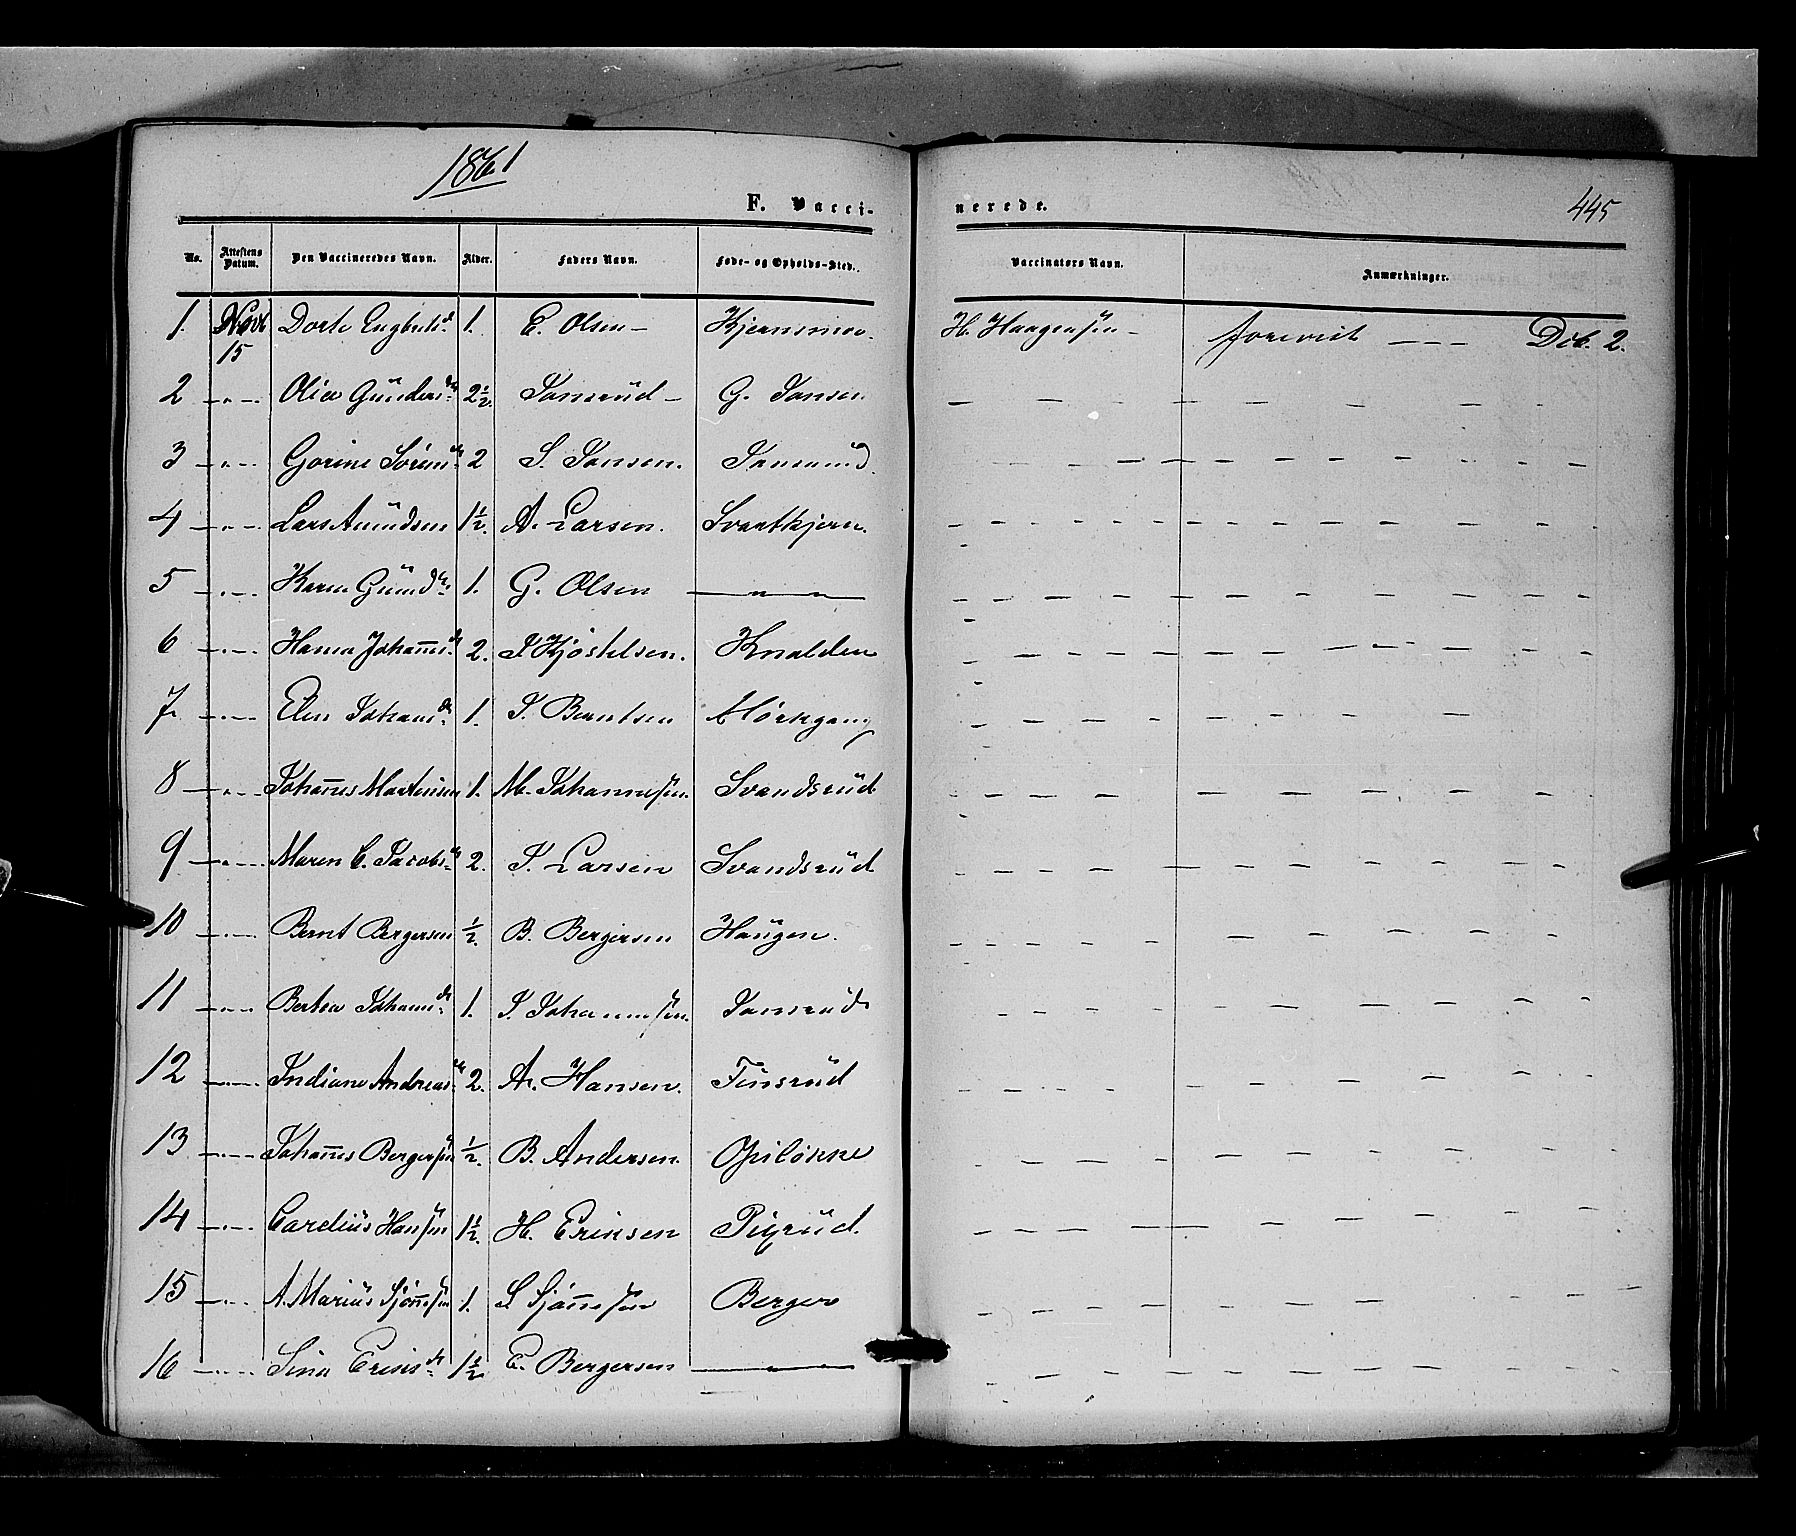 1861
F. Vacci-
nerede.
445
No. Attestens Datum. Den Vaccineredes Navn. Alder. Faders Navn. Føde- og Opholds-Sted. Vaccinators Navn. Anmærkninger.
1. Novb 15 Dorte Engbretsd. 1. E. Olsen – Kjernsmoe. H. Haagensen – forevist – – – Deb. 2.
2 – „ – Olia Gunders dr. 2½. Jansrud – G. Jansen
3 – „ – Gorine Sörens dr. 2 S. Jansen. Jansrud.
4 – „ – Lars Amundsen 1½. A. Larsen. Svartkjern.
5 – „ – Karen Gund dr. 1. G. Olsen — „ — „ —
6 – „ – Hanna Johannsdr. 2. J Kjöstelsen. Knalden
7. – „ – Elen Johansdr. 1. J. Berntsen Mörkgang
8 – „ – Johannes Martinsen 1. M. Johannessen. Svandsrud
9 – „ – Maren C. Jacobsdr. 2. J. Larsen Svandsrud
10 – „ – Bernt Bergersen ½. B. Bergersen Haugen.
11 – „ – Bertea Johannsdr. 1. J. Johannessen. Jansrud
12 – „ – Indiane Andreasdr. 2. A. Hansen. Finsrud
13 – „ – Johannes Bergersen ½. B. Andersen. Opsilökke
14 – „ – Carelius Hansen 1½. H. Eriksen Pigrud.
15 – „ – A. Marius Sjönnesen 1. S Sjönnesen Berger
16 – „ – Sina Eriksdr. 1½ E. Bergersen — „ — „ —